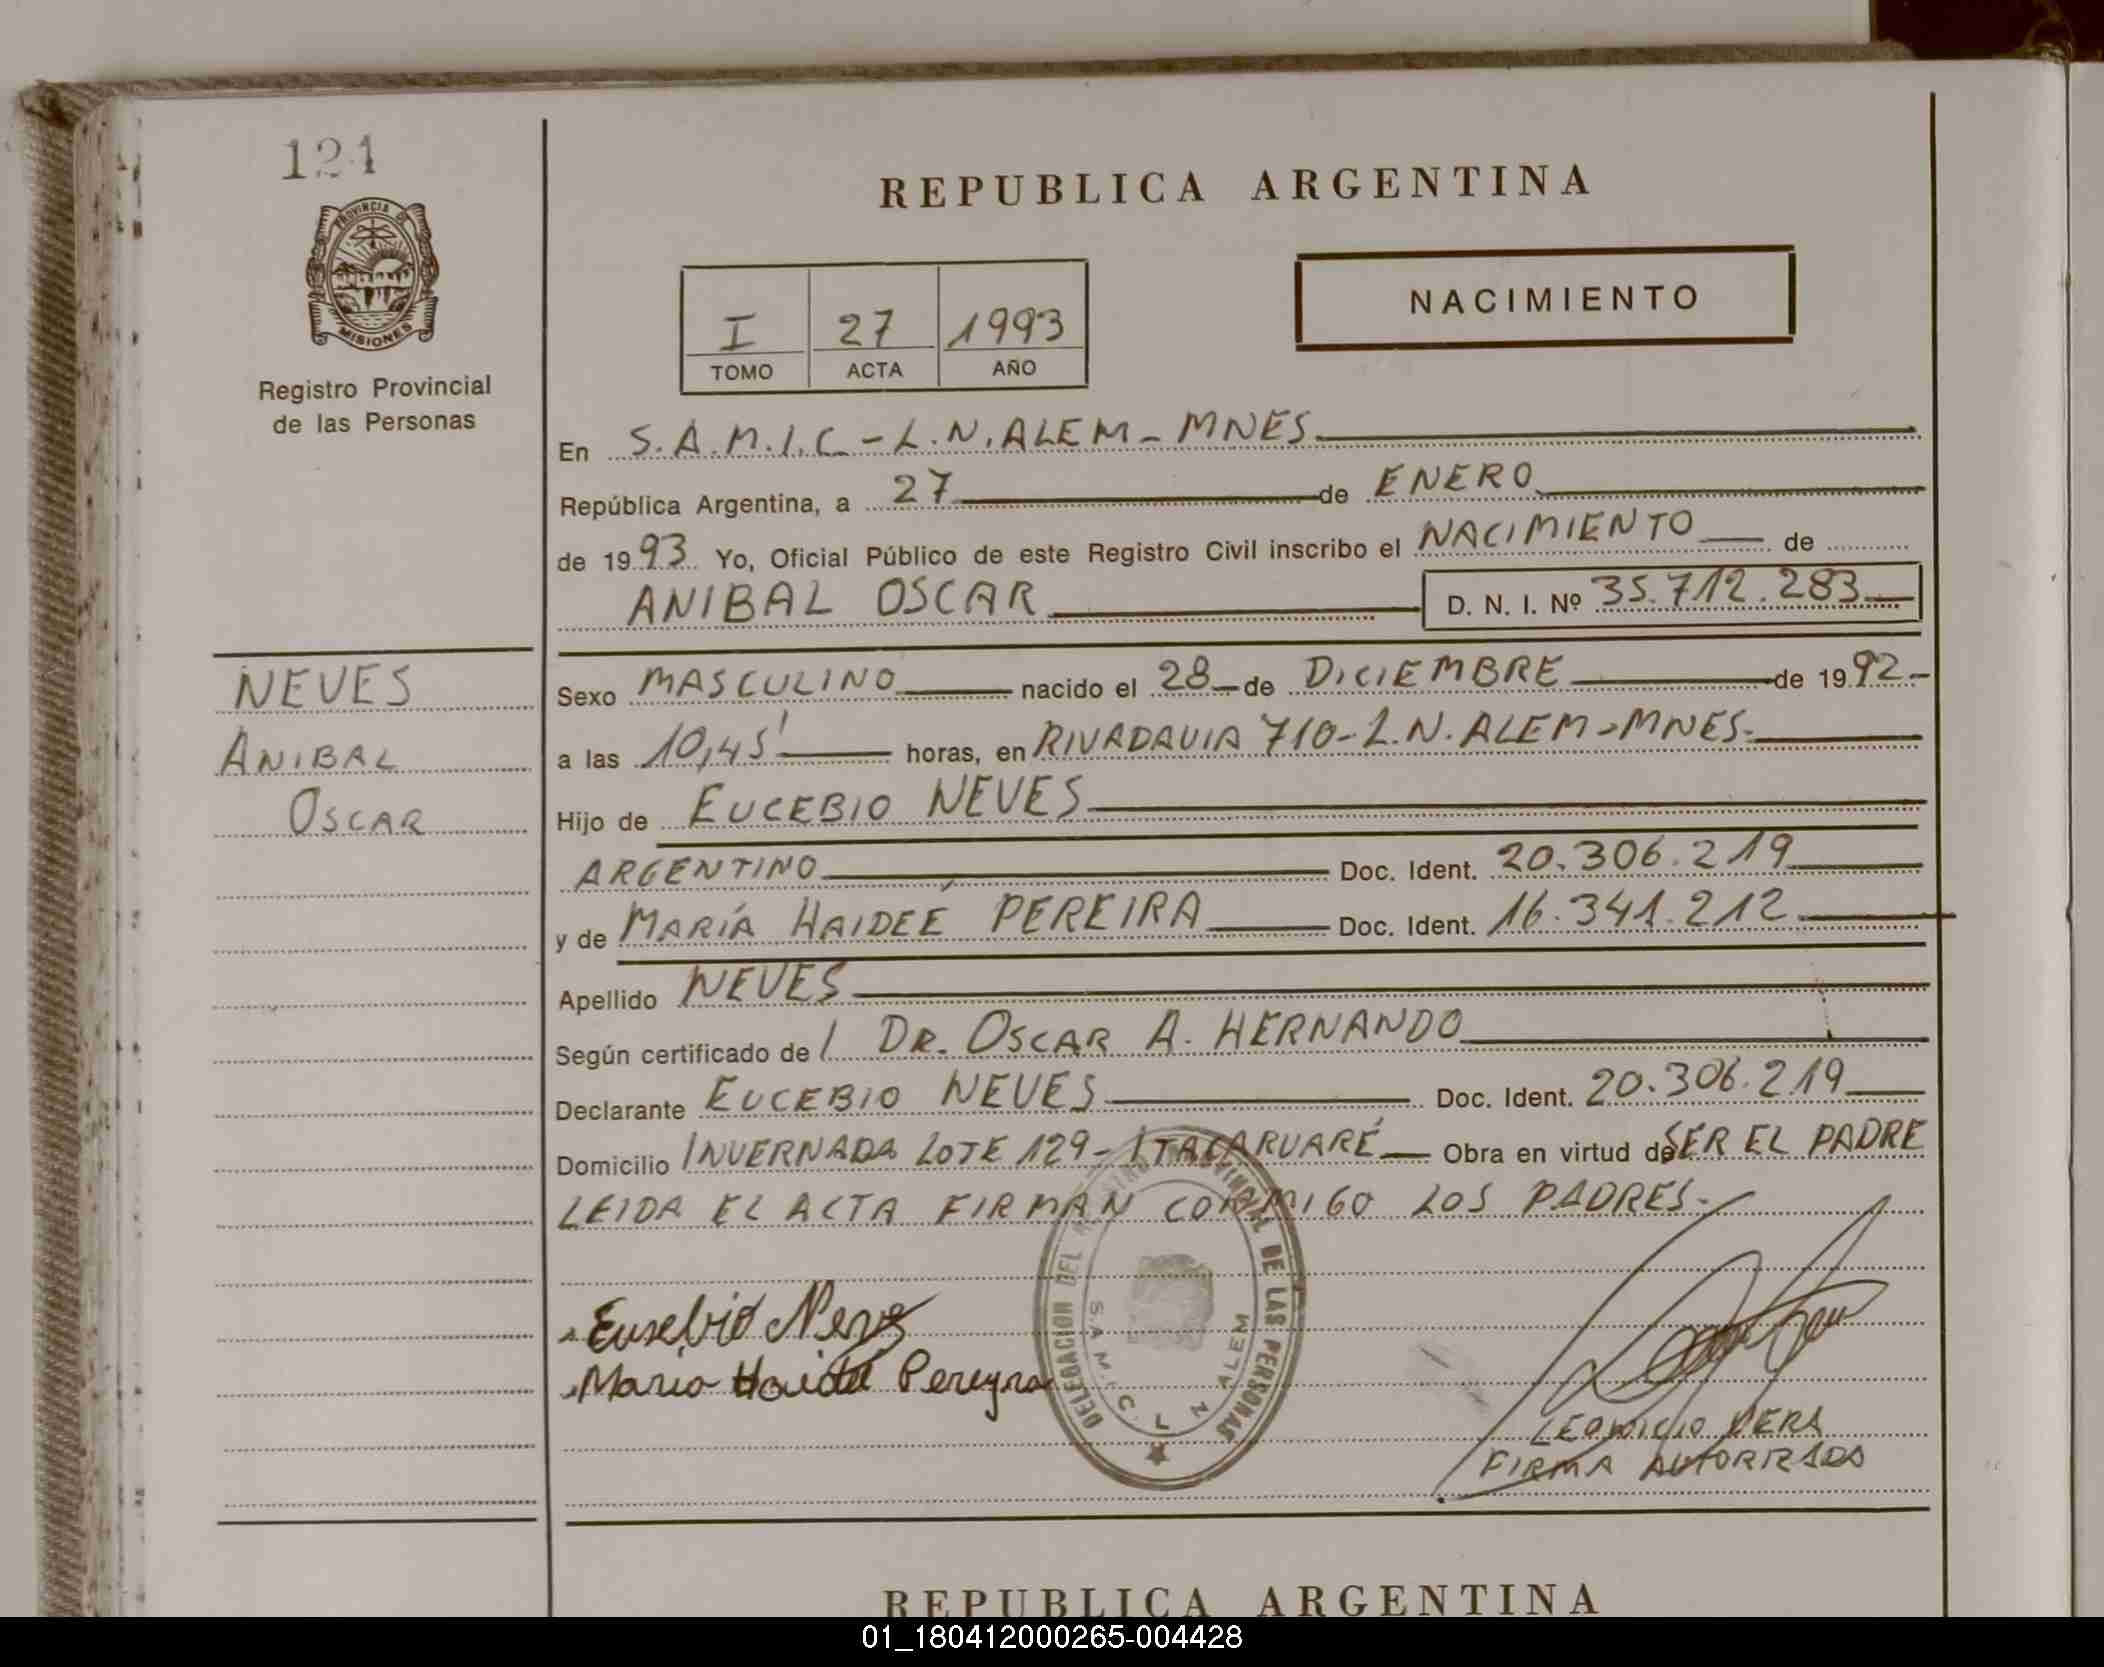 124
PROVINCIA DE
MISIONES
Registro Provincial
de las Personas
REPUBLICA ARGENTINA
I 27 1993
TOMO ACTA AÑO
NACIMIENTO
En S.A.M.I.C - L.N. ALEM - MNES
República Argentina, a 27 de ENERO
de 1993 Yo, Oficial Público de este Registro Civil inscribo el NACIMIENTO de
ANIBAL OSCAR D. N. I. Nº 35.712.283
NEVES
ANIBAL
OSCAR
Sexo MASCULINO nacido el 28 de DICIEMBRE de 1992-
a las 10,45' horas, en RIVADAVIA 710- L.N. ALEM - MNES-
Hijo de EUCEBIO NEVES
ARGENTINO Doc. Ident. 20.306.219
y de MARÍA HAIDEÉ PEREIRA Doc. Ident. 16.341.212
Apellido NEVES
Según certificado de / DR. OSCAR A. HERNANDO
Declarante EUCEBIO NEVES Doc. Ident. 20.306.219
Domicilio INVERNADA LOTE 129- ITACARUARÉ Obra en virtud de SER EL PADRE
LEIDA EL ACTA FIRMAN CONMIGO LOS PADRES-
Eusebio Neves
Maria Haideé Pereyra
DELEGACION DEL REGISTRO PROVINCIAL DE LAS PERSONAS
S.A.M.I.C. L N ALEM
LEONICIO VERA
FIRMA AUTORIZADA
REPUBLICA ARGENTINA
01_180412000265-004428